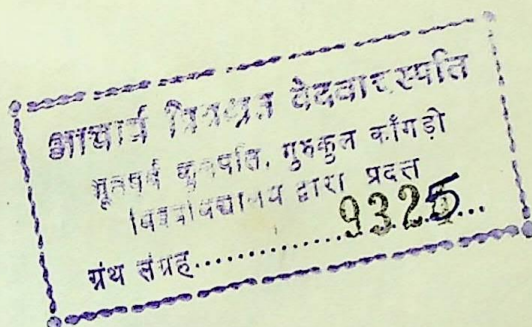 आचार्य प्रियव्रत वेदवाचस्पति
भूतपूर्व कुलपति, गुरुकुल काँगड़ी
विश्वविद्यालय द्वारा प्रदत्त
ग्रंथ संग्रह..............9325....